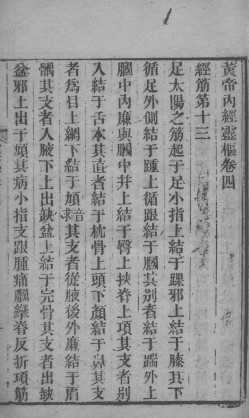 1
黃帝內經靈樞卷四
經筋第十三
足太陽之筋起于足小指上結于踝邪上結于膝其下
循足外側結于踵上循跟結于膕其別者結于踹外上
膕中內廉與膕中并上結于臀上挾脊上項其支者別
入結于舌本其直者結于枕骨上頭下顏結于鼻其支
者爲目上網下結于頄音求其支者從腋後外廉結于肩
髃其支者入腋下上出缺盆上結于完骨其支者出缺
盆邪上出于頄其病小指支跟腫痛膕攣脊反折項筋